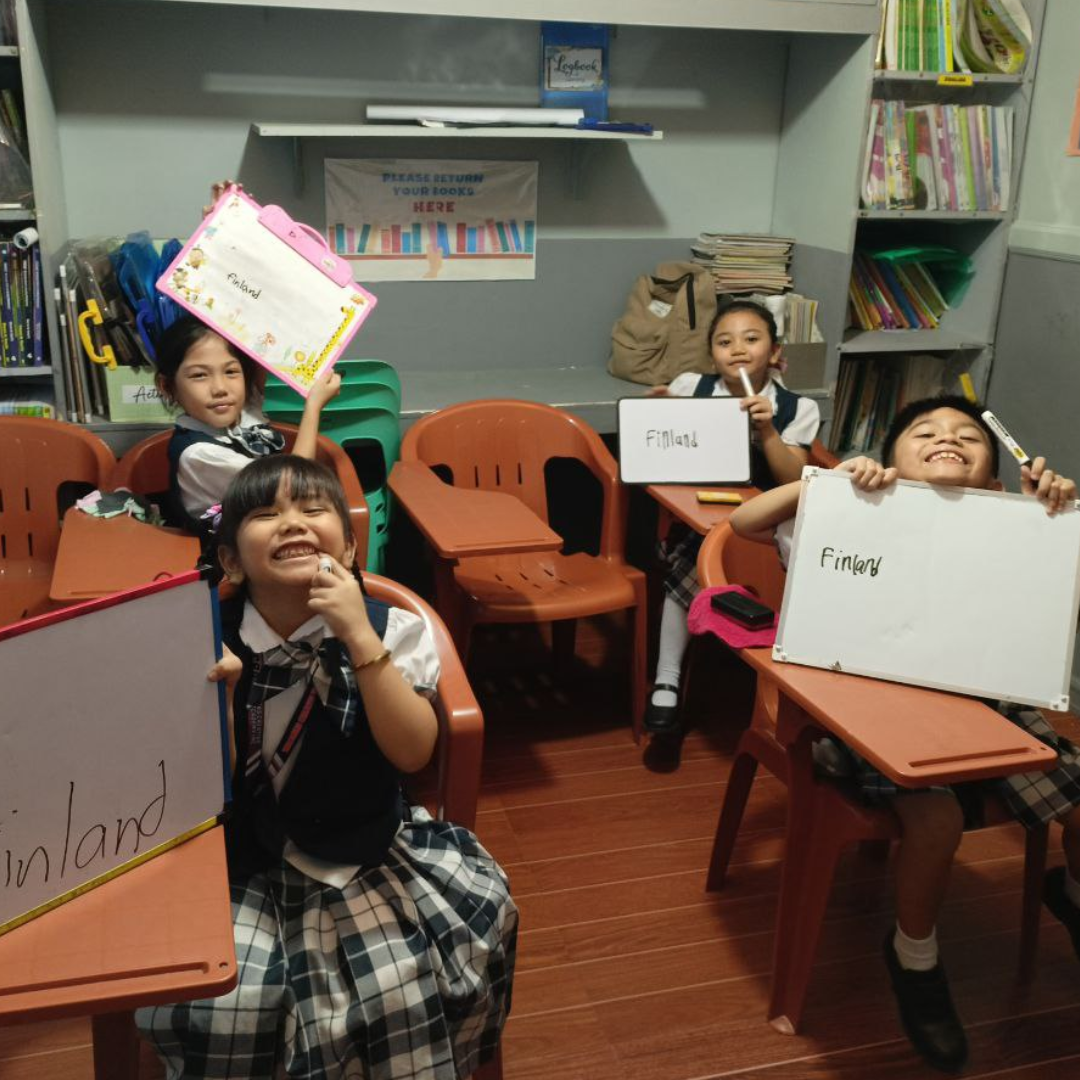 Logbook
PLEASE RETURN
YOUR BOOKS
HERE
Finland
Finland
Finland
inland